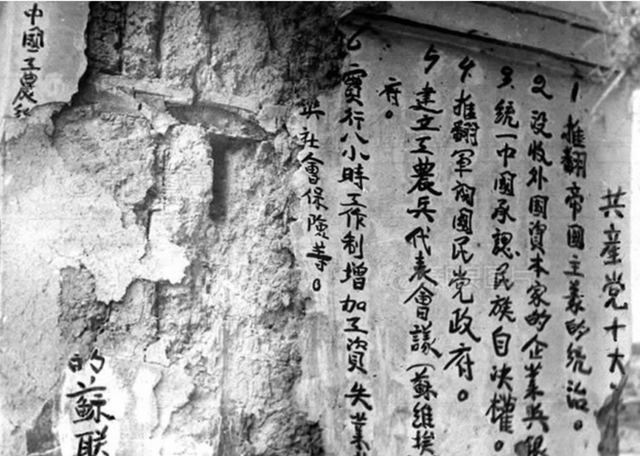 共産党十大
1推翻帝國主義的統治。
2没收外國資本家的企業與銀
3統一中國承認民族自決權。
4推翻軍閥國民党政府。
5建立工農兵代表會議(蘇維埃
府。
6實行八小時工作制增加工資失業
與社會保險等。
中國工農紅
的蘇联